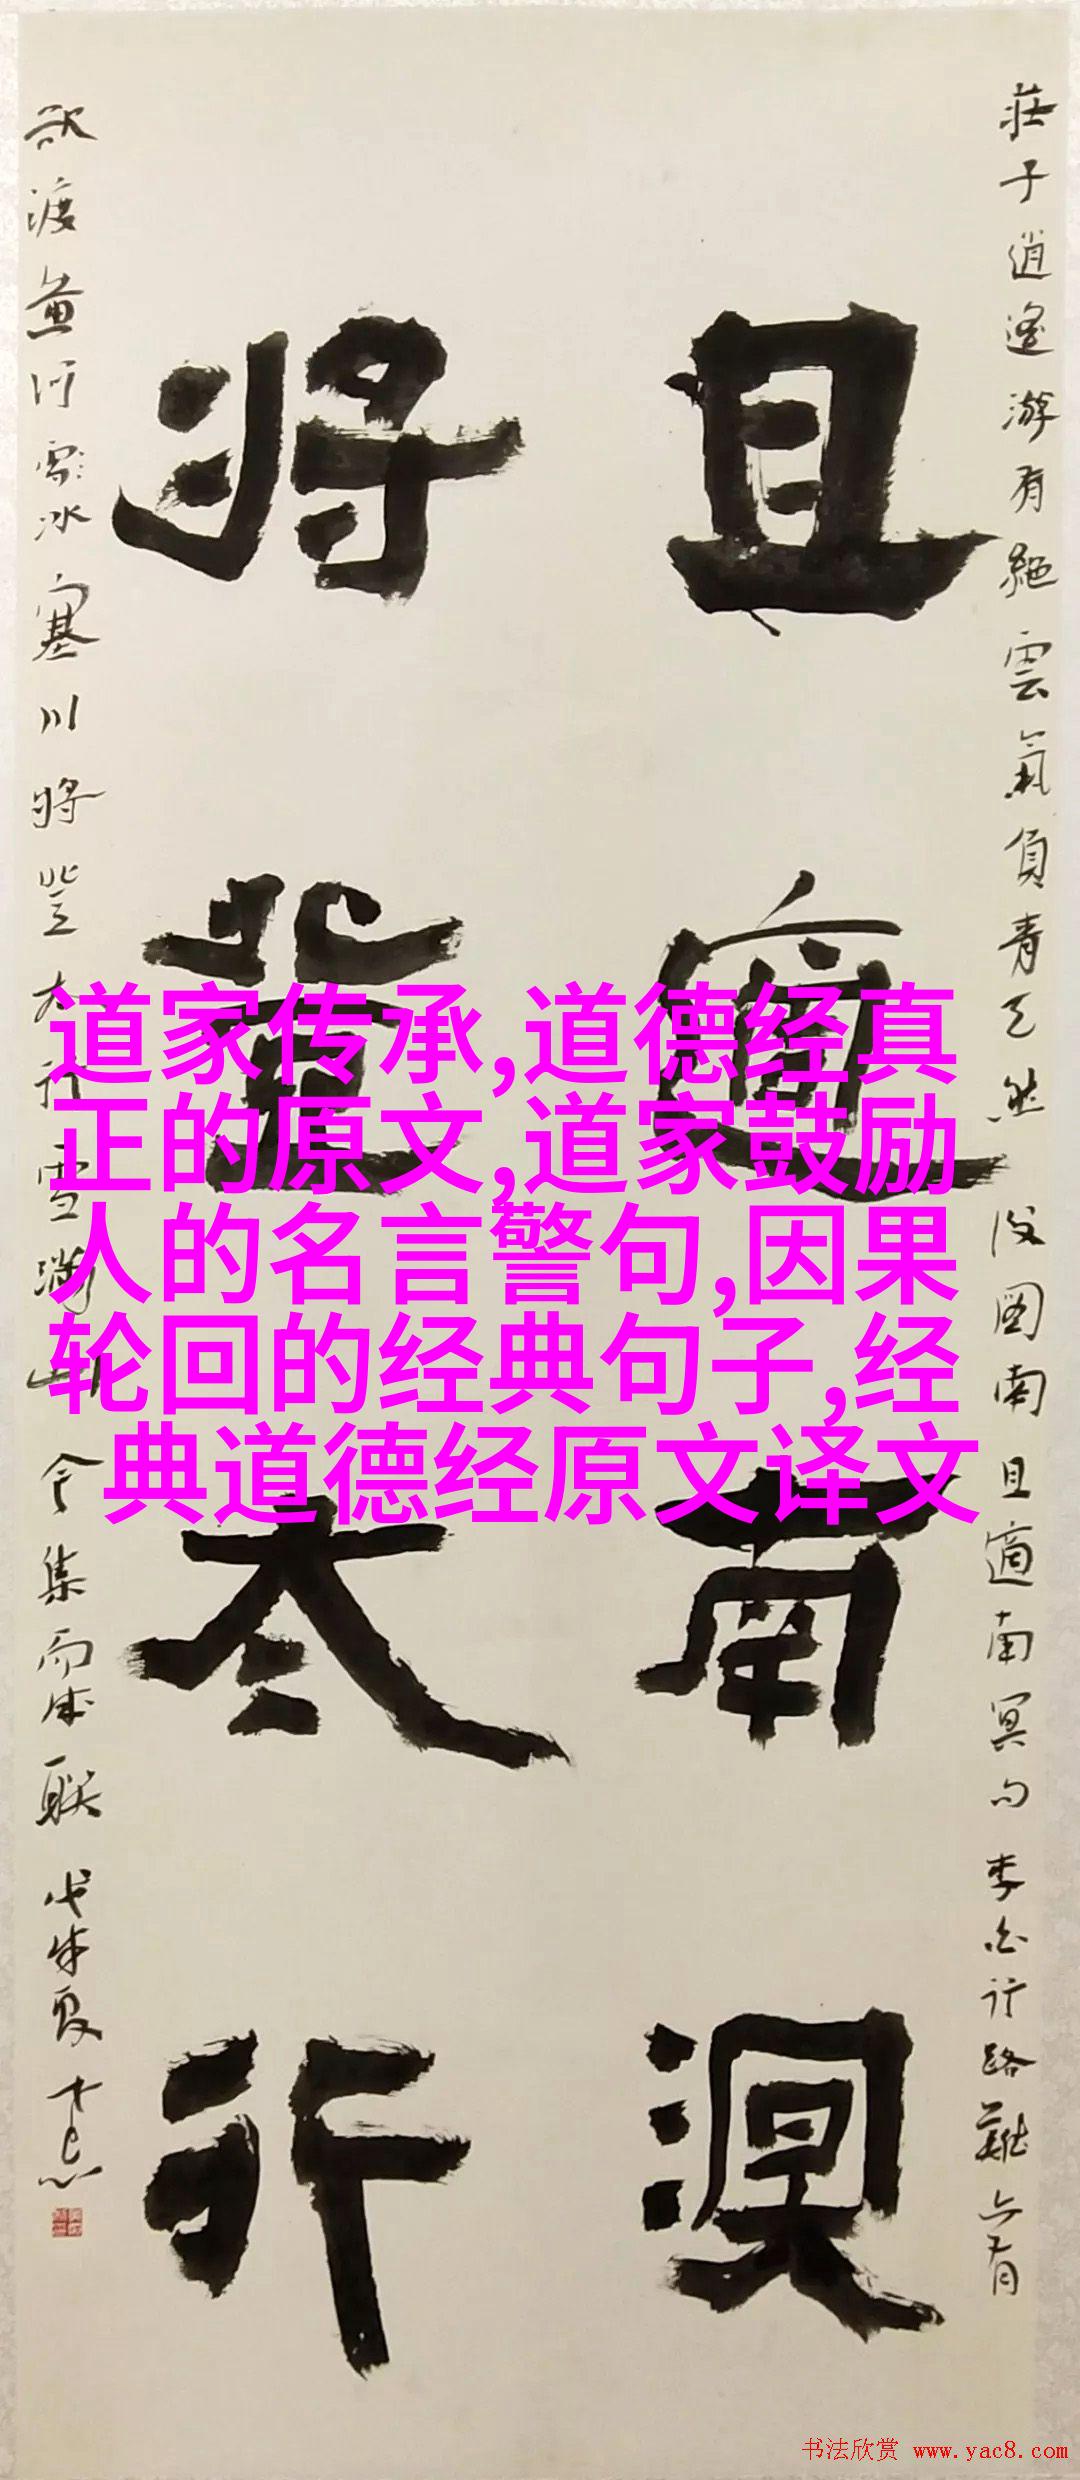 莊子逍遙游有絕雲氣負青天然後圖南且適南冥句李白行路難亦有
且適南溟
將登太行
欲渡黃河冰塞川將登太行雪滿山今集而成聯戊戌夏
道家传承,道德经真
正的原文,道家鼓励
人的名言警句,因果
轮回的经典句子,经
典道德经原文译文
书法欣赏 www.yac8.com